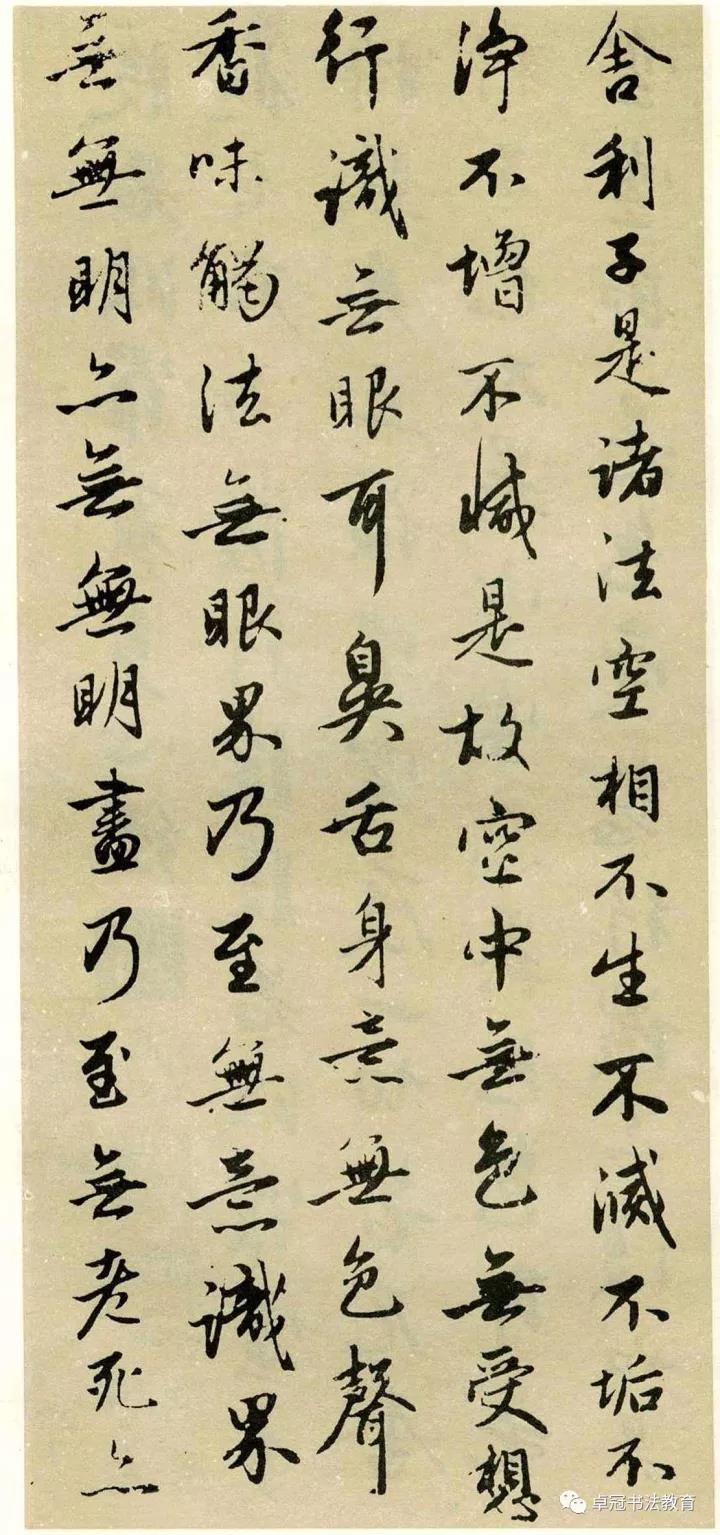 舍利子是諸法空相不生不滅不垢不
淨不增不減是故空中無色無受想
行識无眼耳鼻舌身意無色聲
香味觸法無眼界乃至無意識界
無無明亦無無明盡乃至無老死亦
卓冠书法教育